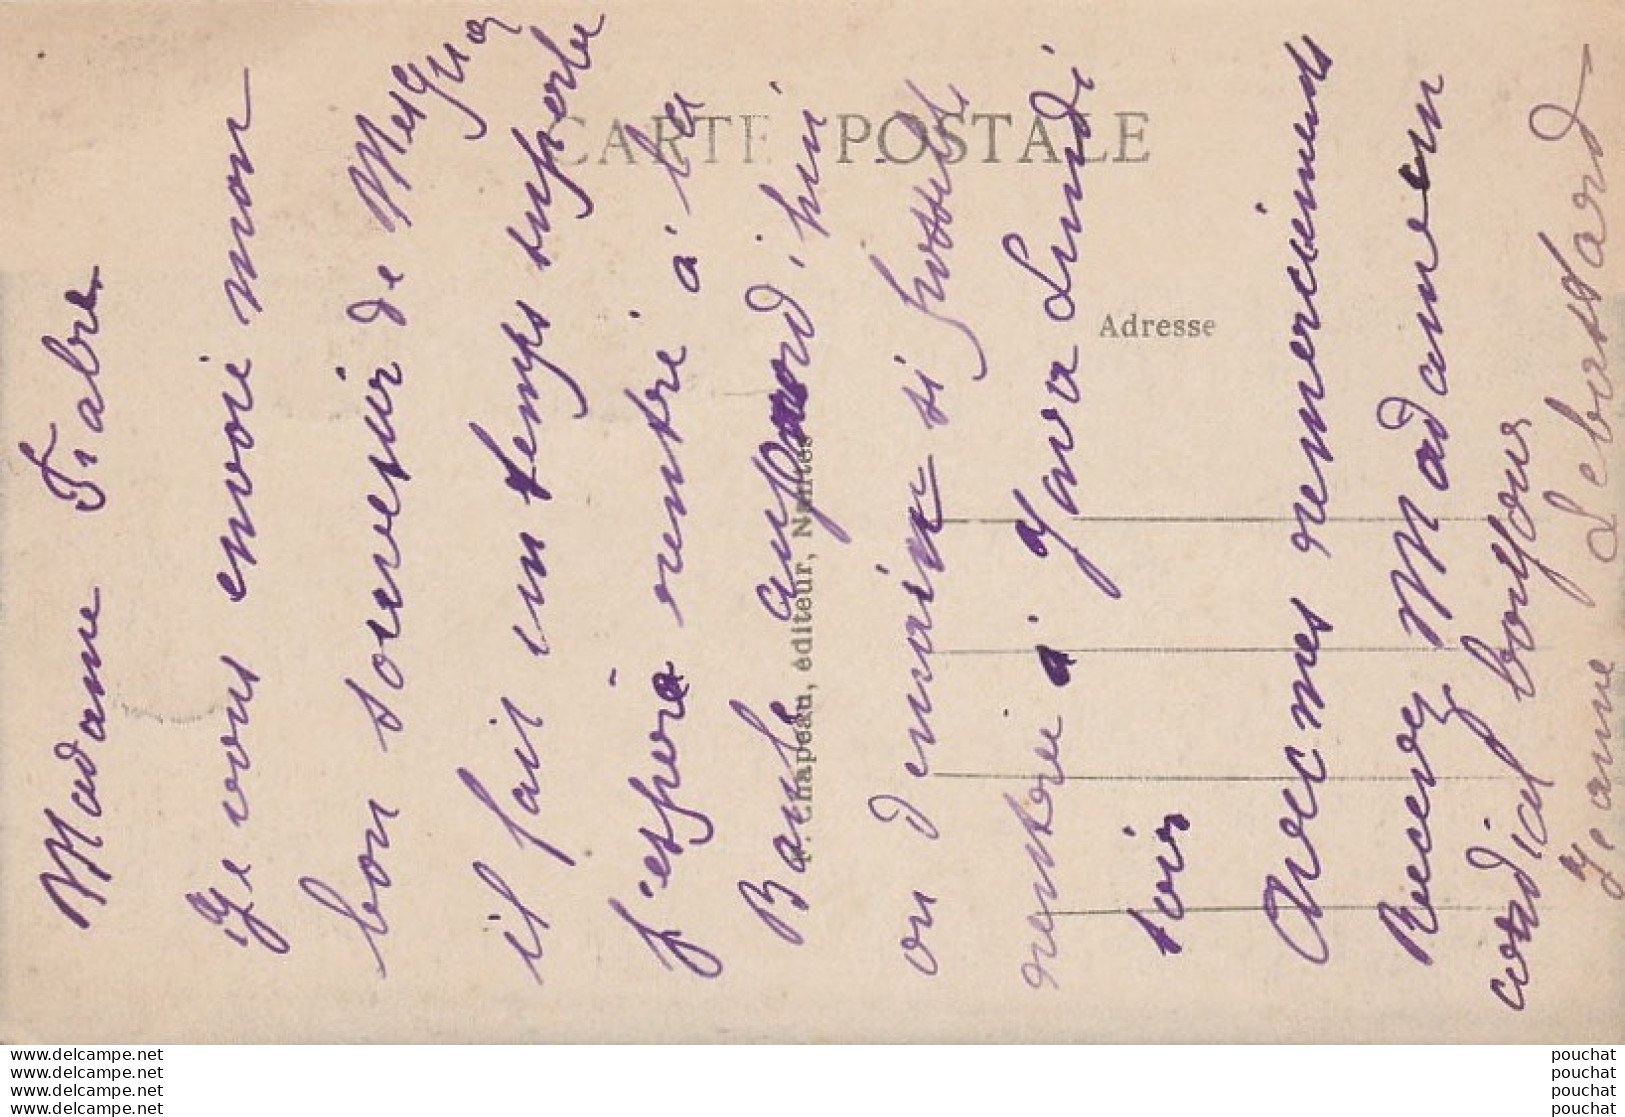 Madame Fiabre
Je vous envoie mon
bon souvenir de Mesquer
il fait un temps superbe
j'espère rentré à la
Baule aujourd'hui
ou demain si possible
rentrée à Lundi
soir
Avec mes remerciements
Recevez Madame un
cordial bonjour
Jeanne Lebastard
CARTE POSTALE
Adresse
F. Chapeau, éditeur, Nantes
www.delcampe.net
www.delcampe.net
www.delcampe.net
www.delcampe.net
pouchat
pouchat
pouchat
pouchat